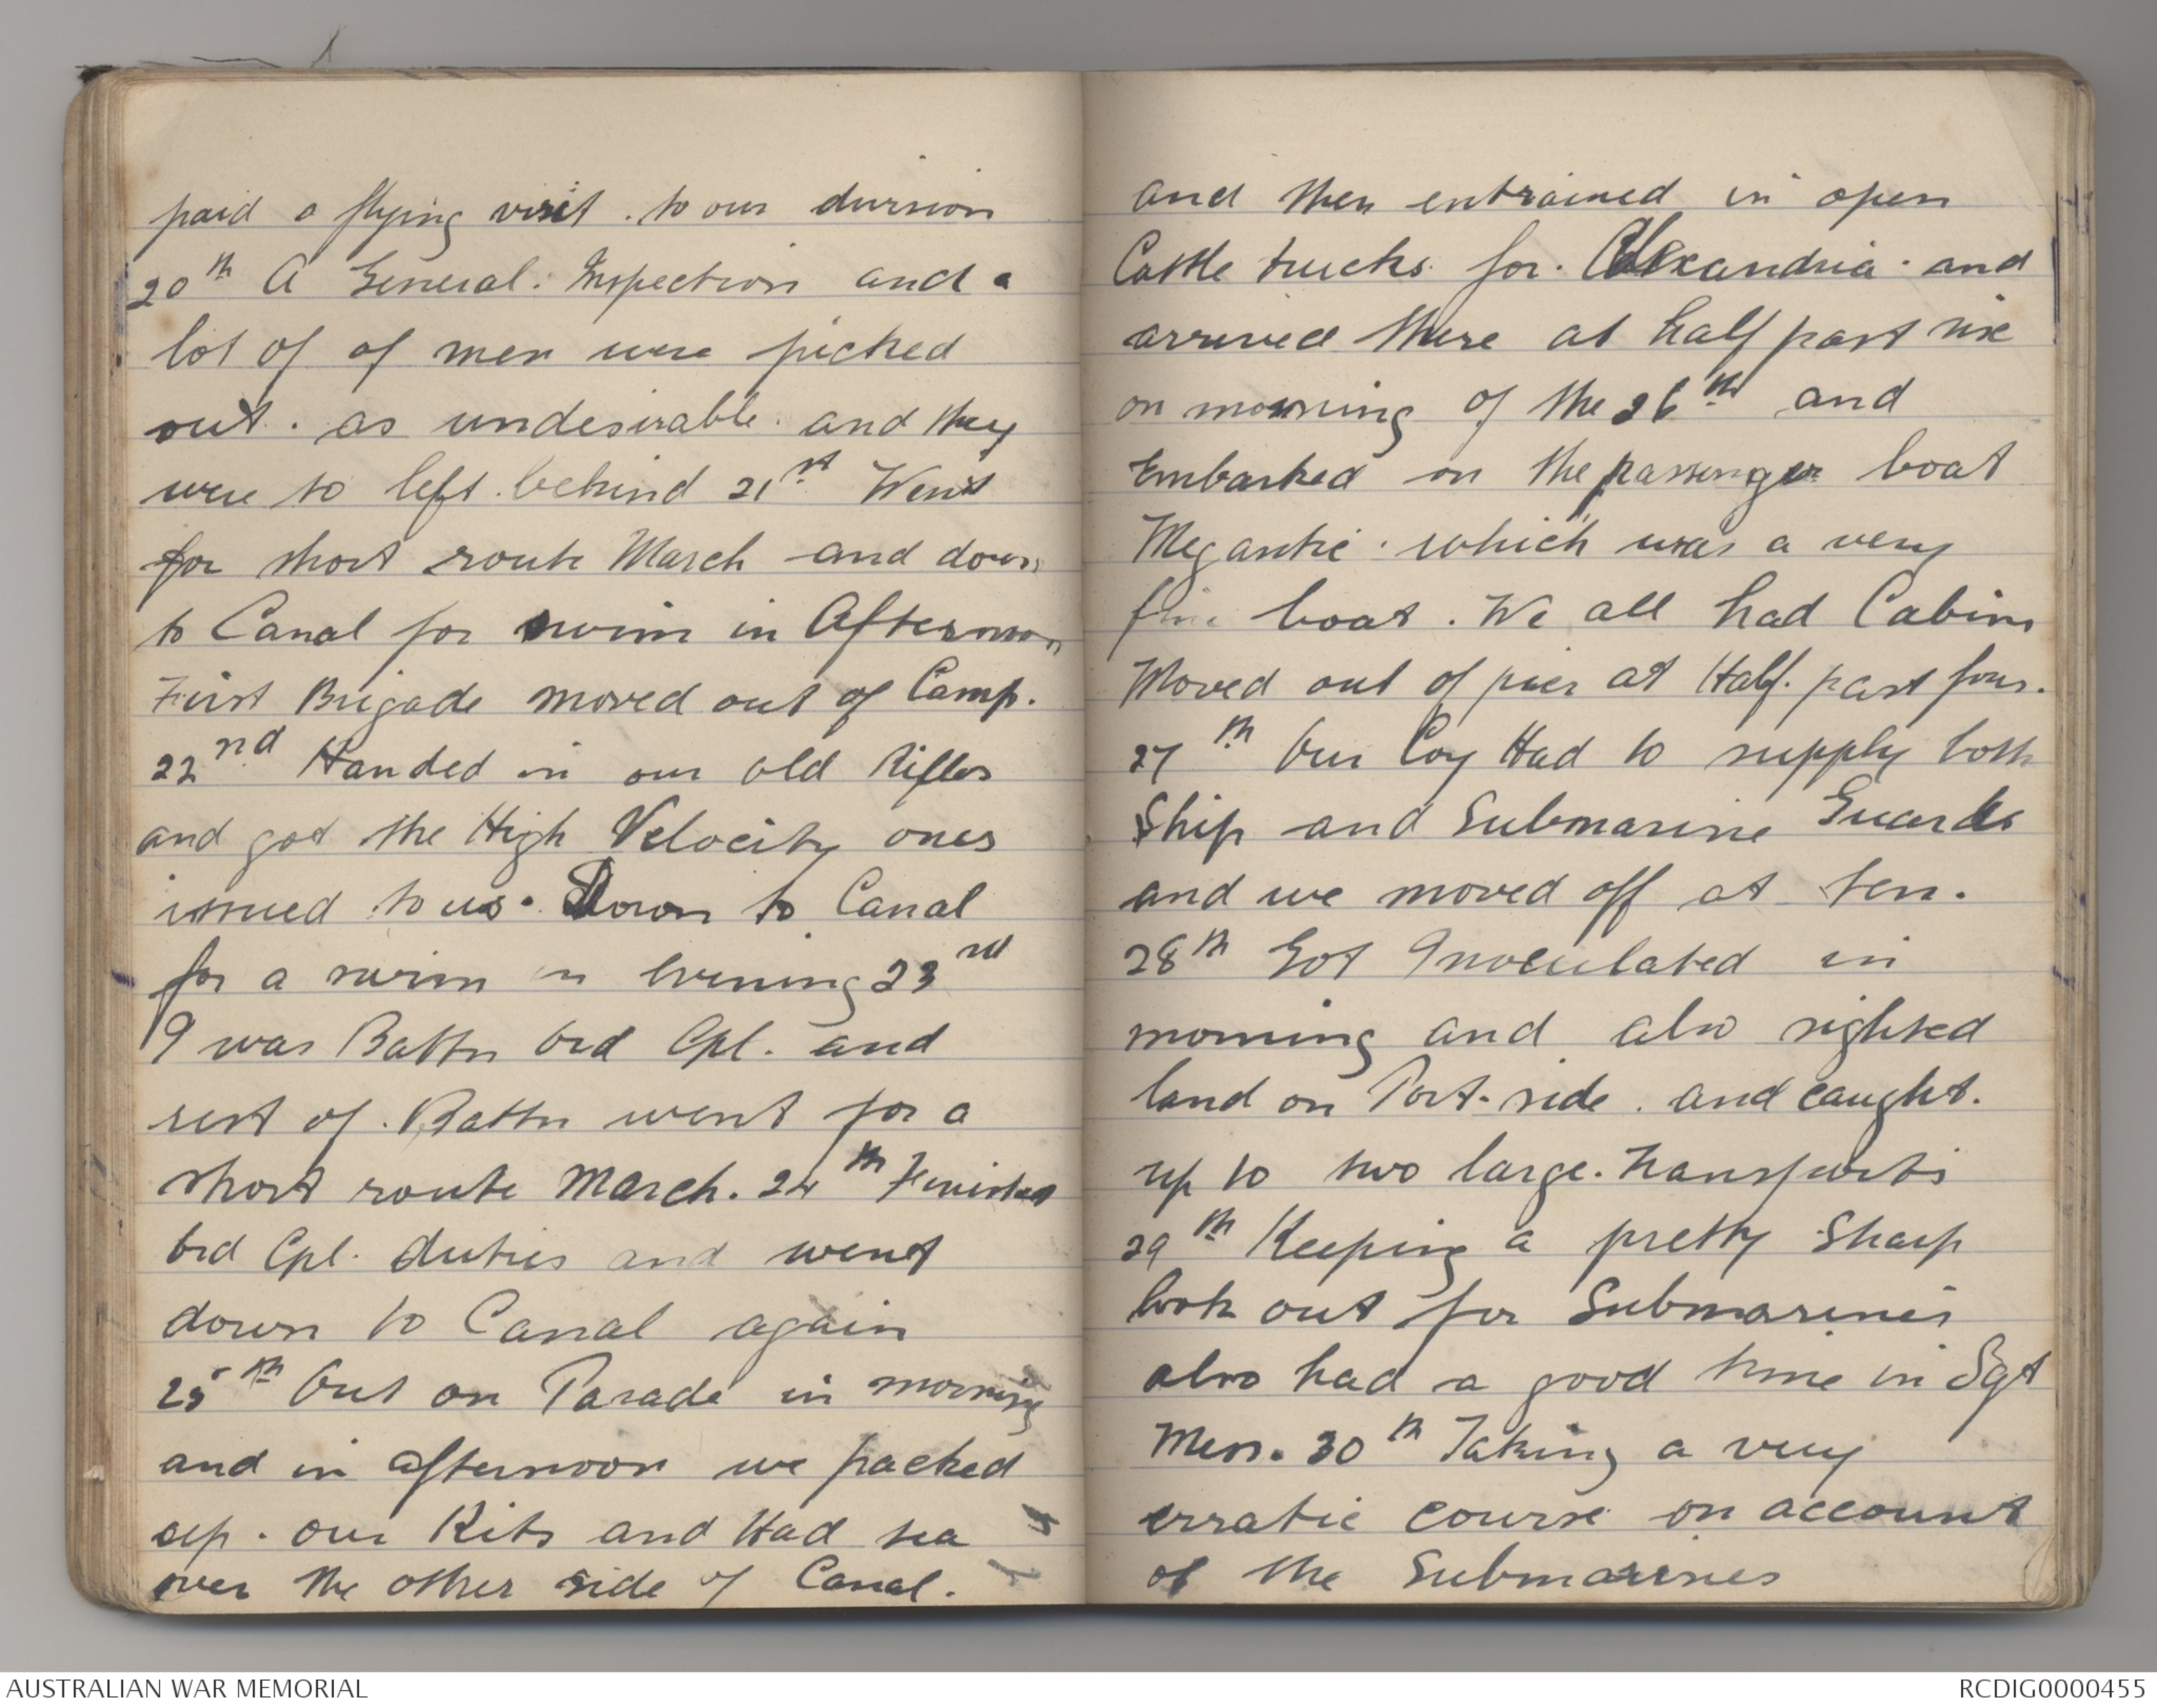 paid a flying visit . to our division
20th A General. Inspection and a
lot of of men were picked
out . as undesirable . and they
were to left . behind 21st Went
for short route March and down
to Canal for swim in Afternoon
First Brigade moved out of Camp.
22nd Handed in our old Rifles
and got the High Velocity ones
issued to us. Down to Canal
for a swim in evening 23rd
I was Battn Ord Cpl. and
rest of . Battn went for a
short route March. 24th Finished
Ord Cpl. duties and went
down to Canal again
25th Out on Parade in morning
and in afternoon we packed
up . our Kits and Had tea
over the other side of Canal.
and then entrained in open
Cattle trucks for . Alexandria . and
arrived there at half past six
on morning of the 26th and
Embarked on the passenger boat
Megantic . which was a very
fine boat . We all had Cabins
Moved out of pier at Half. past four.
27th Our Coy Had to supply both
Ship and Submarine Guards
and we moved off at ten.
28th Got Inoculated in
morning and also sighted
land on Port-side . and caught.
up to two large. Transports
29th Keeping a pretty Sharp
look out for Submarines
also had a good time in Sgt
Mess. 30th Taking a very
erratic course on account
of the Submarines
AUSTRALIAN WAR MEMORIAL
RCDIG0000455